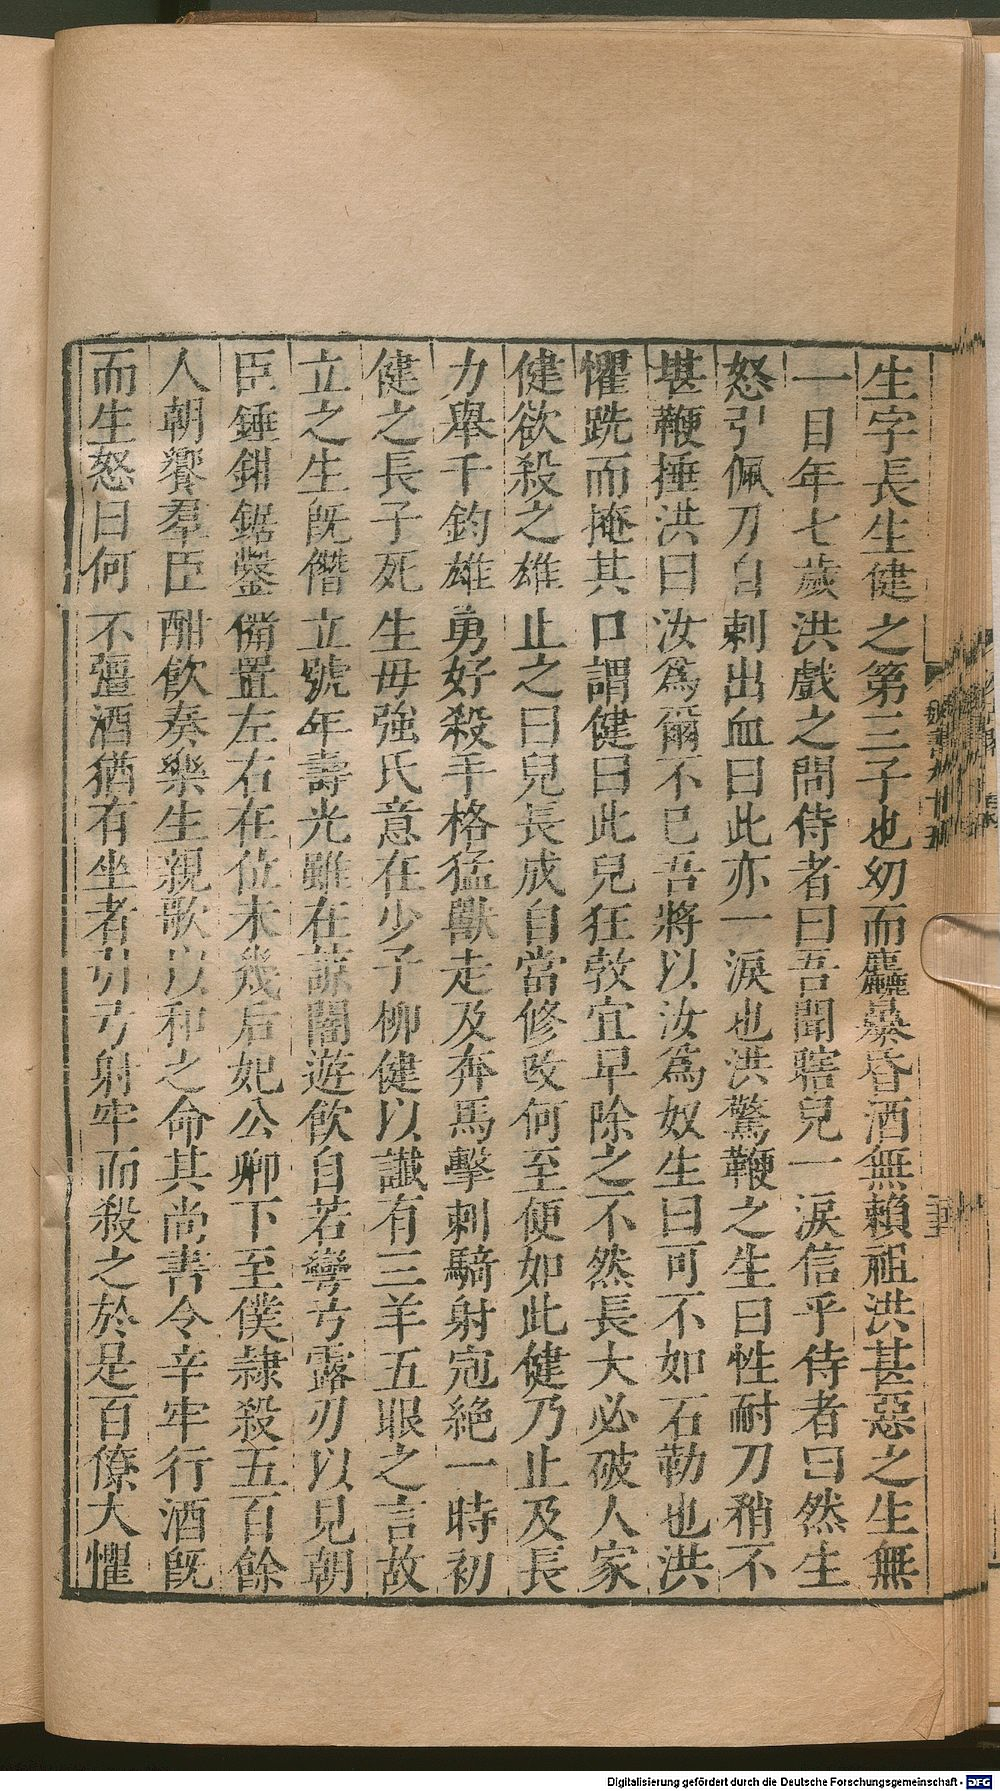 生字長生健之第三子也幼而麤暴昏酒無賴祖洪甚惡之生無
一目年七歲洪戲之問侍者曰吾聞瞎兒一淚信乎侍者曰然生
怒引佩刀自刺出血曰此亦一淚也洪驚鞭之生曰性耐刀矟不
堪鞭捶洪曰汝爲爾不已吾將以汝爲奴生曰可不如石勒也洪
懼跣而掩其口謂健曰此兒狂敎宜早除之不然長大必破人家
健欲殺之雄止之曰兒長成自當修改何至便如此健乃止及長
力舉千鈞雄勇好殺手格猛獸走及奔馬擊刺騎射冠絕一時初
健之長子死生母強氏意在少子柳健以讖有三羊五眼之言故
立之生旣僭立號年壽光雖在諒闇遊飲自若彎弓露刃以見朝
臣錘鉗鋸鑿備置左右在位未幾后妃公卿下至僕隸殺五百餘
人朝饗羣臣酣飲奏樂生親歌以和之命其尚書令辛牢行酒旣
而生怒曰何不彊酒猶有坐者引弓射牢而殺之於是百僚大懼
Digitalisierung gefördert durch die Deutsche Forschungsgemeinschaft - DFG